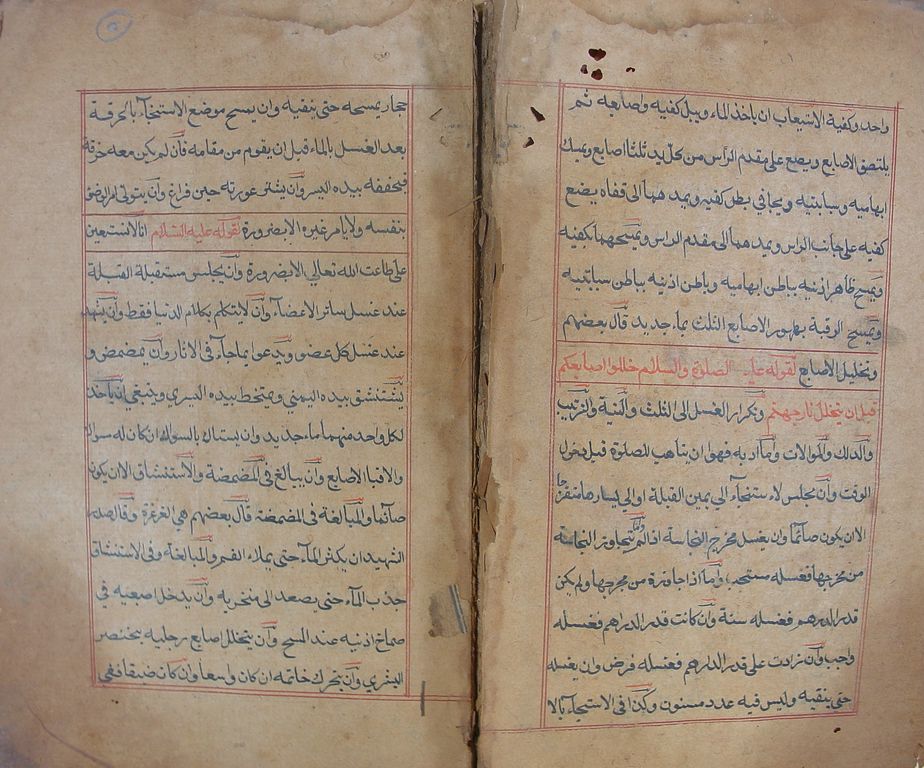 واحد وكفية الاستيعاب ان ياخذ الماء ويبل كفيه واصابعه ثم
يلتصق الاصابع ويضع على مقدم الرأس من كل يد ثلثا اصابع ويمسك
ابهاميه وسبابتيه ويجافي بطن كفيه ويمدهما الى قفاه يضع
كفيه على جانب الراس ويمدهما الى مقدم الراس ويمسحهما بكفيه
ويمسح ظاهر اذنيه بباطن ابهاميه وباطن اذنيه بباطن سبابتيه
ويمسح الرقبة بظهور الاصابع الثلث بماء جديد قال بعضهم
وتخليل الاصابع لقوله عليه الصلوة والسلام خللوا اصابعكم
قبل ان يتخلل نار جهنم وتكرار الغسل الى الثلث والنية والترتيب
والدلك والموالات وأما ادبه فهو ان يتاهب الصلوة قبل دخول
الوقت وأن يجلس لاستنجآء الى يمين القبلة او الى يسارها متفرجا
الا ان يكون صآئما وان يغسل مخرج النجاسة اذا لم تتجاوز النجاسة
من مخرجها فغسله مستحب وأما اذا جاوزة من مخرجها ولم يكن
قدر الدرهم فغسله سنة وان كانت قدر الدرهم فغسله
واجب وأن زادت على قدر الدرهم فغسله فرض وان يغسله
حتى ينقيه وليس فيه عدد مسنون وكذا في الاستنجآء بالا
حجار يمسحه حتى ينقيه وان يمسح موضع الاستنجآء بالخرقة
بعد الغسل بالماء قبل ان يقوم من مقامه فأن لم يكن معه خرقة
فيجففه بيده اليسر وأن يستر عورته حين فراغ وأن يتولى امر الوضوء
بنفسه ولا يامر غيره الا بضرورة لقوله عليه السلام انا لا استعين
على طاعت الله تعالى الا بضرورة وأن يجلس مستقبلة القبلة
عند غسل سائر الاعضآء وأن لا يتكلم بكلام الدنيا فقط وأن يتشهد
عند غسل كل عضو ويدعوا بما جآء في الاثار وأن يمضمض و
يستنشق بيده اليمنى ويمتخط بيده اليسرى وينبغى ان ياخذ
لكل واحد منهما ماء جديد وان يستاك بالسواك ان كان له سواك
والا فبالاصابع وأن يبالغ فى المضمضة والاستنشاق الا ان يكون
صآئما والمبالغة فى المضمضة قال بعضهم هي الغرغرة وقال صدر
الشهيد ان يكثر المآء حتى يملاء الفم والمبالغة وفى الاستنشاق
جذب المآء حتى يصعد الى منخريه وأن يدخل اصبعيه في
صماخ اذنيه عند المسح وأن يتخلل اصابع رجليه بخنصر
اليسرى وأن يتحرك خاتمه ان كان واسعا وان كان ضيقا ففى